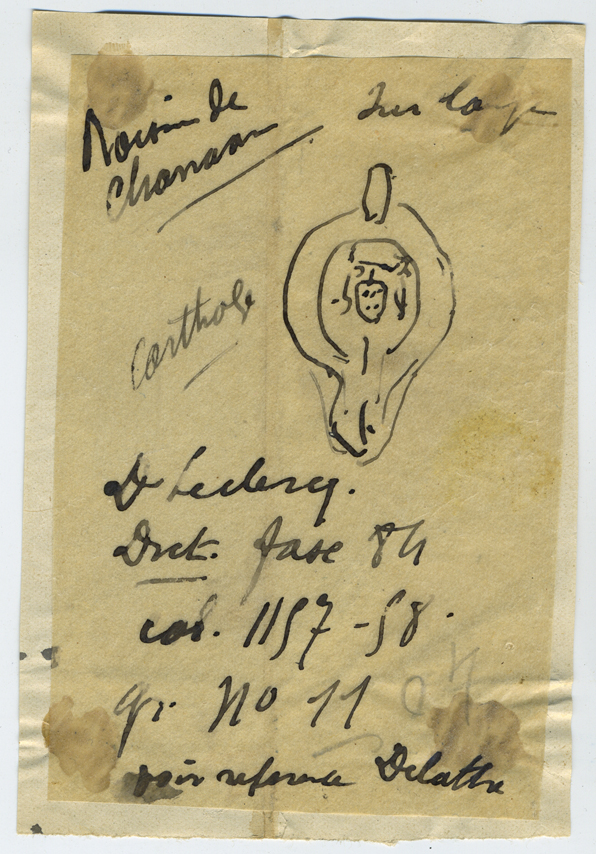 Raisin de
Chanaan
Sur lampe
Carthage
D. Leclercq.
Dict. fasc 84
col. 1157-58.
gr. No 11
voir reference Delattre